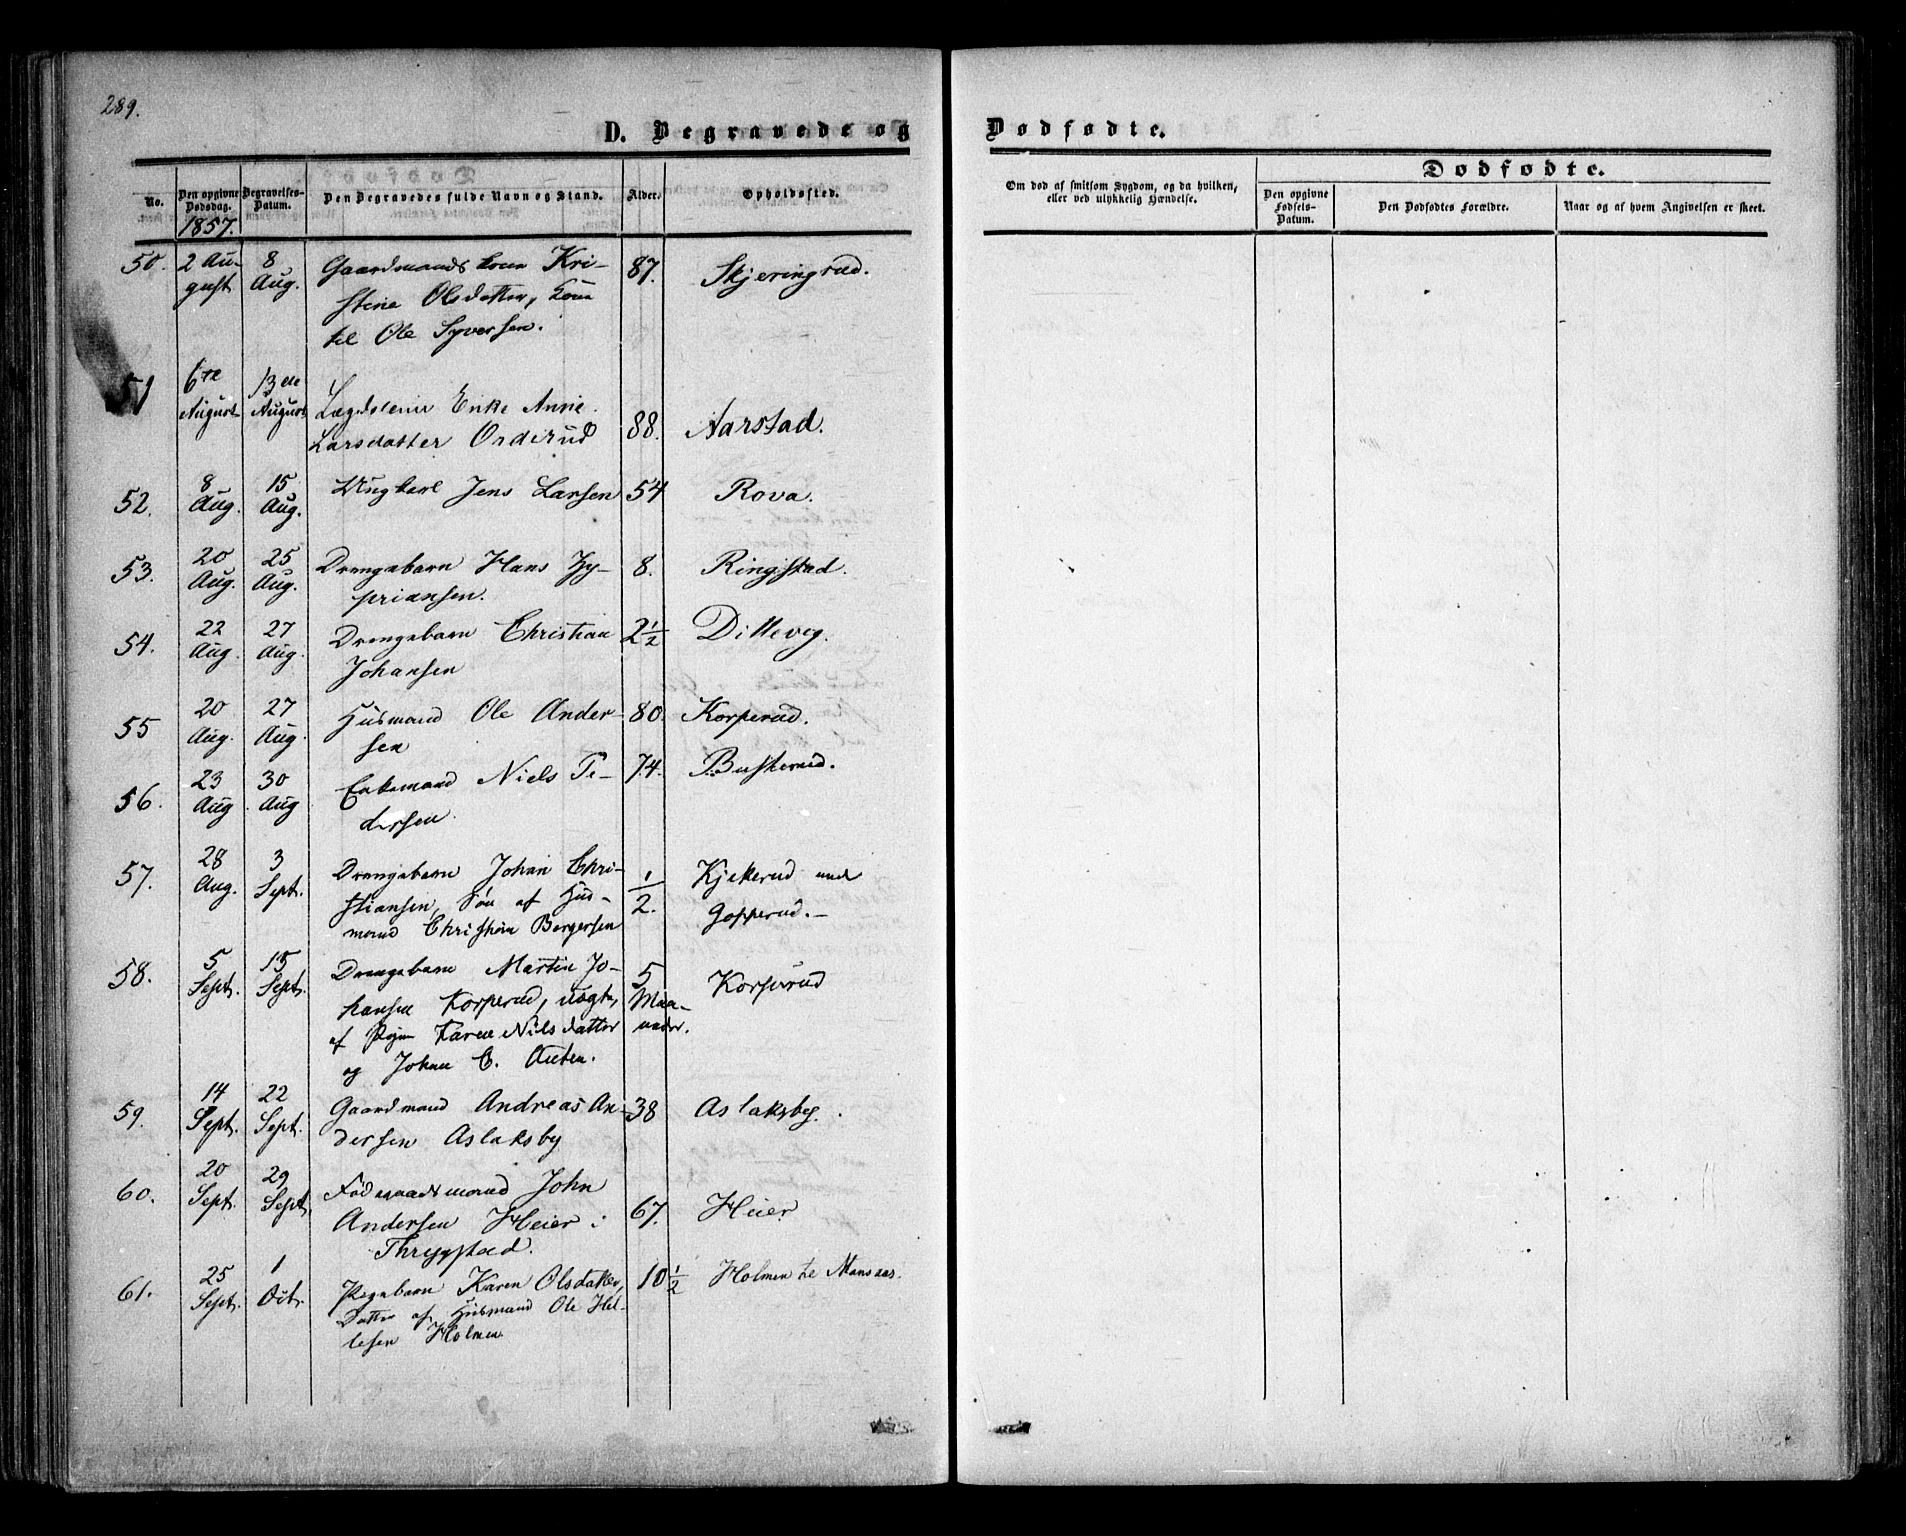 289.
D. Begravede og
Dødfødte.
No.
Den opgivne Dødsdag.
1857.
Begravelses-Datum.
Den Begravedes fulde Navn og Stand.
Alder.
Opholdssted.
Om død af smitsom Sygdom, og da hvilken, eller ved ulykkelig Hændelse.
Dødfødte.
Den opgivne Fødsels-Datum.
Den Dødfødtes Forældre.
Naar og af hvem Angivelsen er skeet.
50. 2 Au- 8 Gaardmandskone Kri- 87. Skjeringrud.
gust Aug. stine Olsdatter, Kone
til Ole Syversen.
51 6te 13de
August August Lægdslem Enke Anne
Larsdatter Orderud 88. Aarstad.
52. 8 15 Ungkarl Jens Larsen 54 Rova.
Aug. Aug.
53. 20 25 Drengebarn Hans Zy- 8. Ringstad.
Aug. Aug. priansen.
54. 22 27 Drengebarn Christian 2½ Dilleveg.
Aug. Aug. Johansen
55 20 27 Husmand Ole Ander- 80. Korperud.
Aug. Aug. sen
56. 23 30 Enkemand Niels Pe- 74. Buskerud.
Aug Aug dersen.
57. 28 3 Drengebarn Johan Chri- ½. Kjekerud under
Aug. Sept. stiansen, Søn af Hus- Gopperud.
mand Christian Bergersen
58. 5 15 Drengebarn Martin Jo- 5 Korperud
Sept. Sept. hansen Korperud, uægte, Maa-
af Pige Karen Nilsdatter neder.
og Johan C. Anten.
59. 14 22 Gaardmand Andreas An- 38 Aslaksby.
Sept. Sept. dersen Aslaksby
60. 20 29 Føderaadsmand John
Sept. Sept. Andersen Heier i 67. Heier
Thrygstad.
61. 25 1 Pigebarn Karen Olsdatter, 10½ Holmen
Sept. Oct. Datter af Husmand Ole Hel-
lesen Holmen